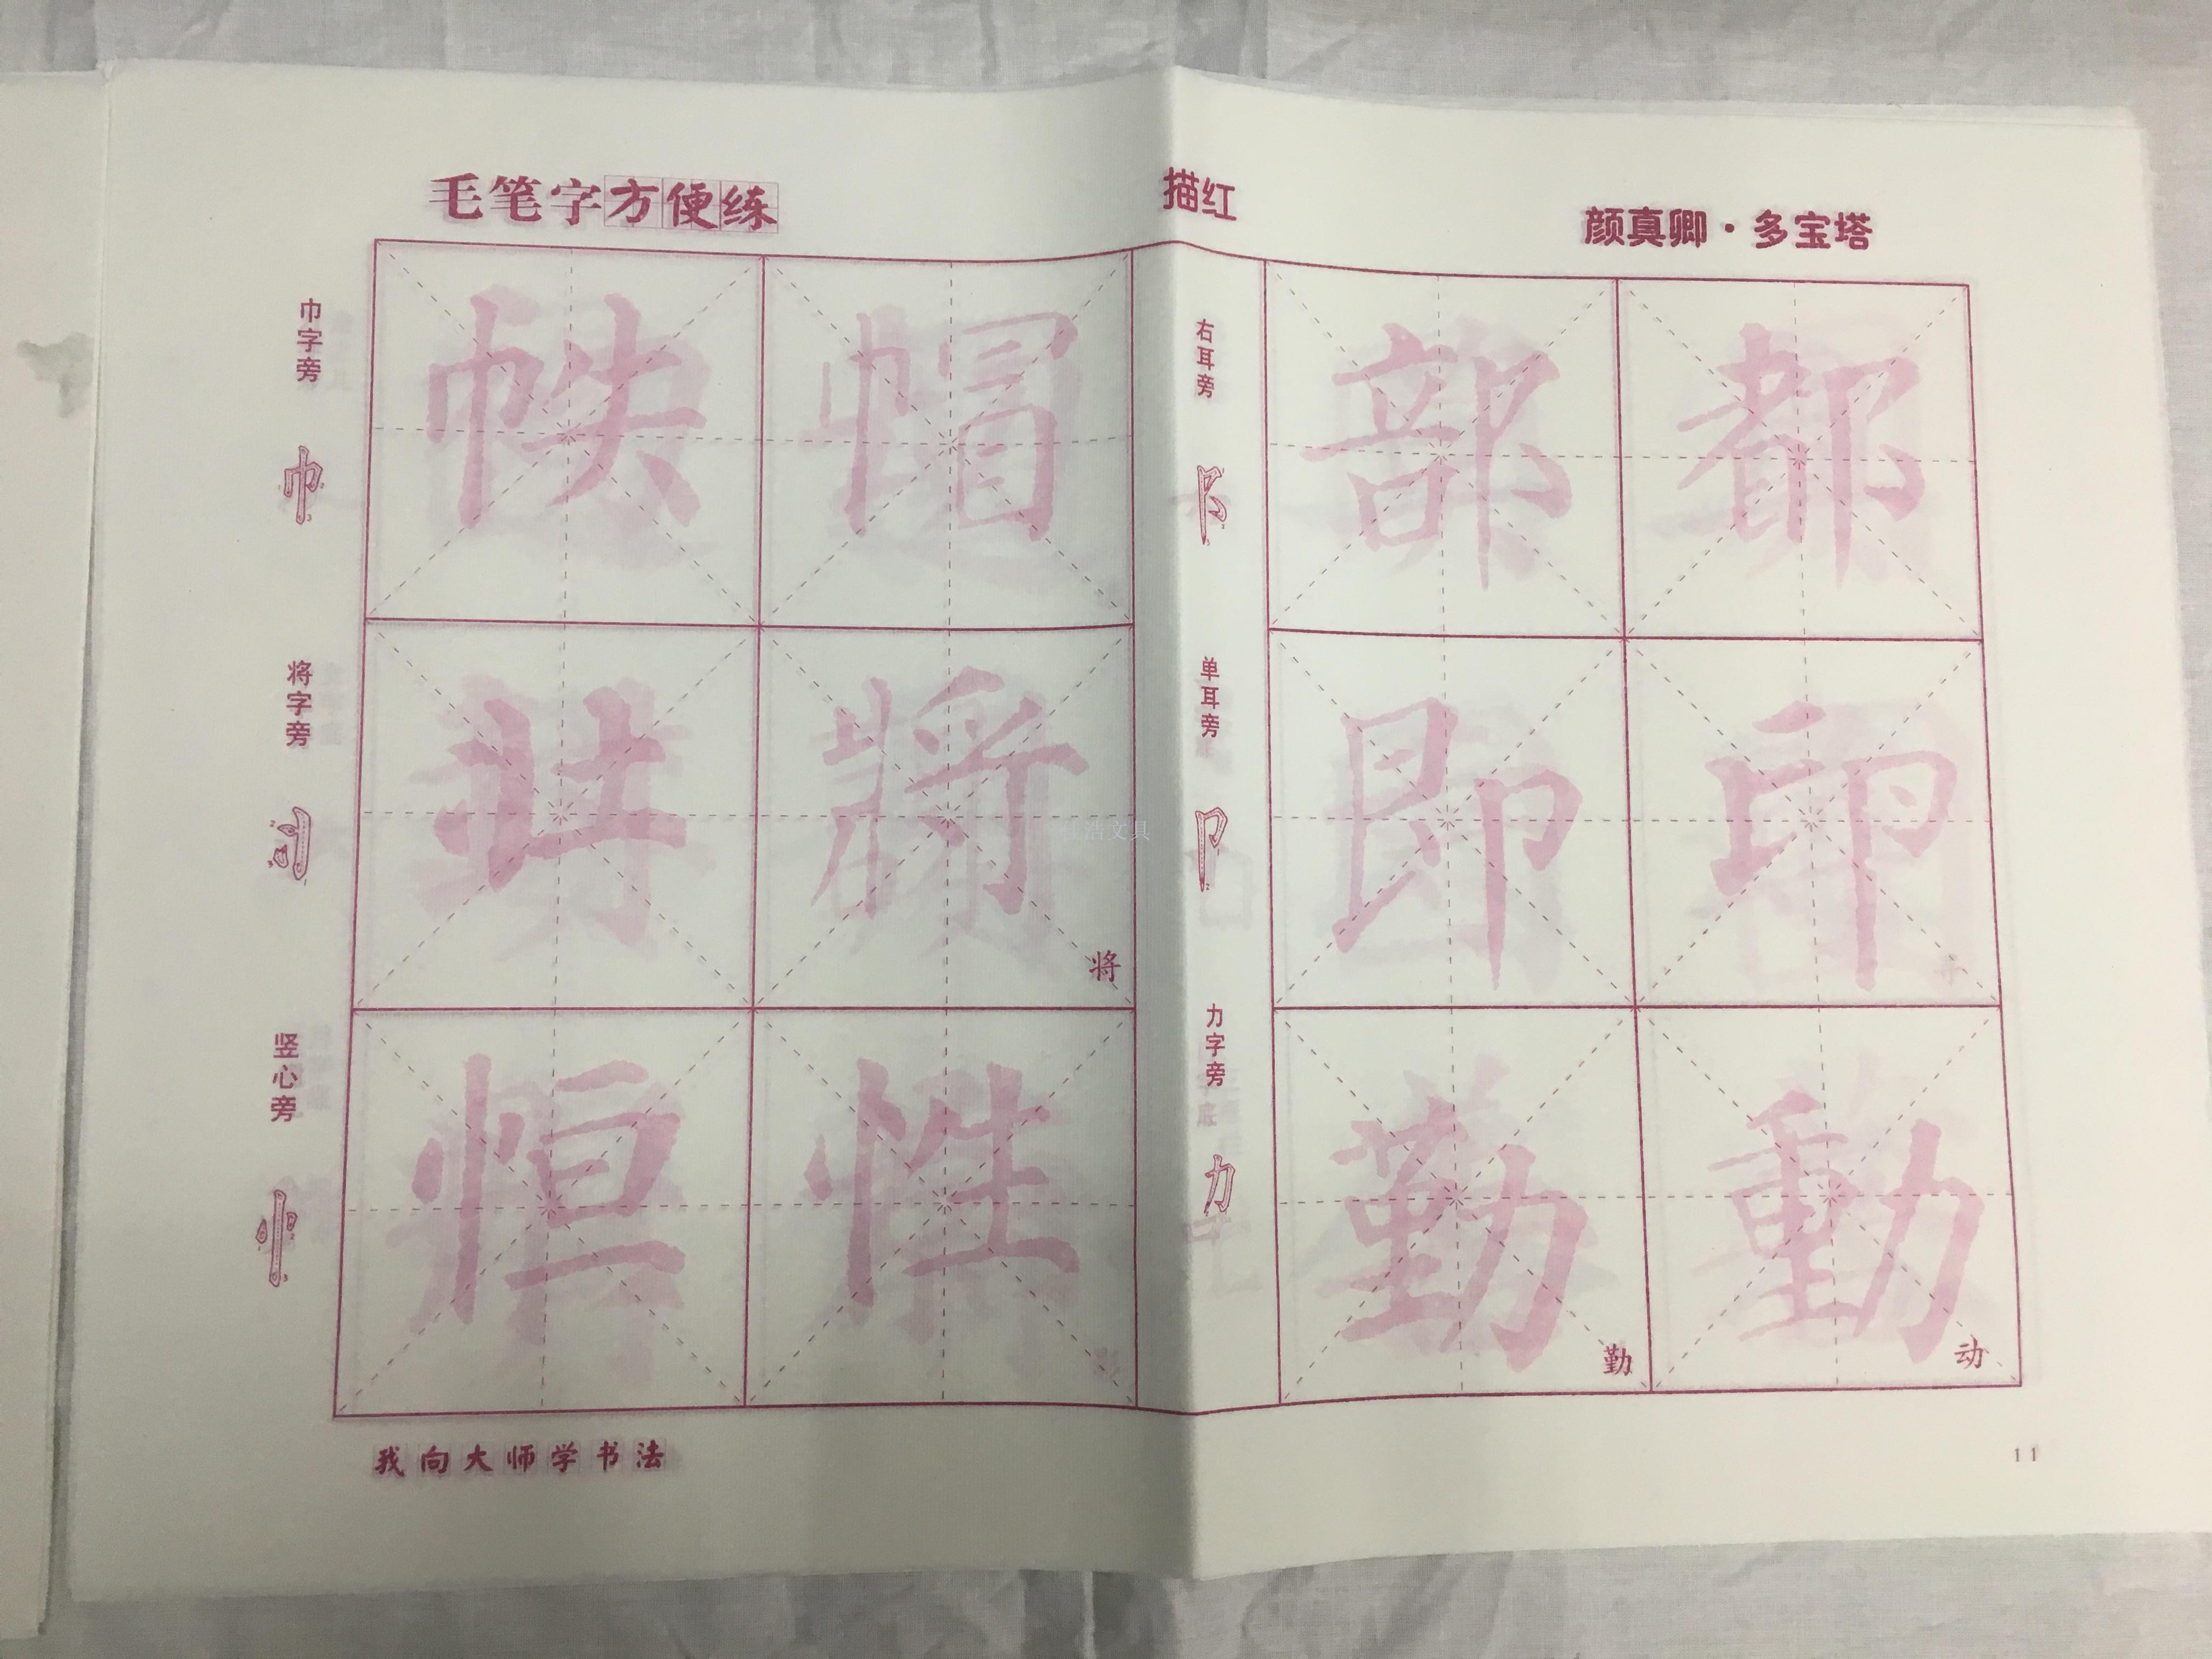 毛笔字方便练
描红
颜真卿·多宝塔
巾字旁
巾
帙 帽
右耳旁
阝
部 都
将字旁
丬
壯 將
将
单耳旁
卩
即 印
竖心旁
忄
恒 性
力字旁
力
勤 動
勤
动
我向大师学书法
11
浩文具